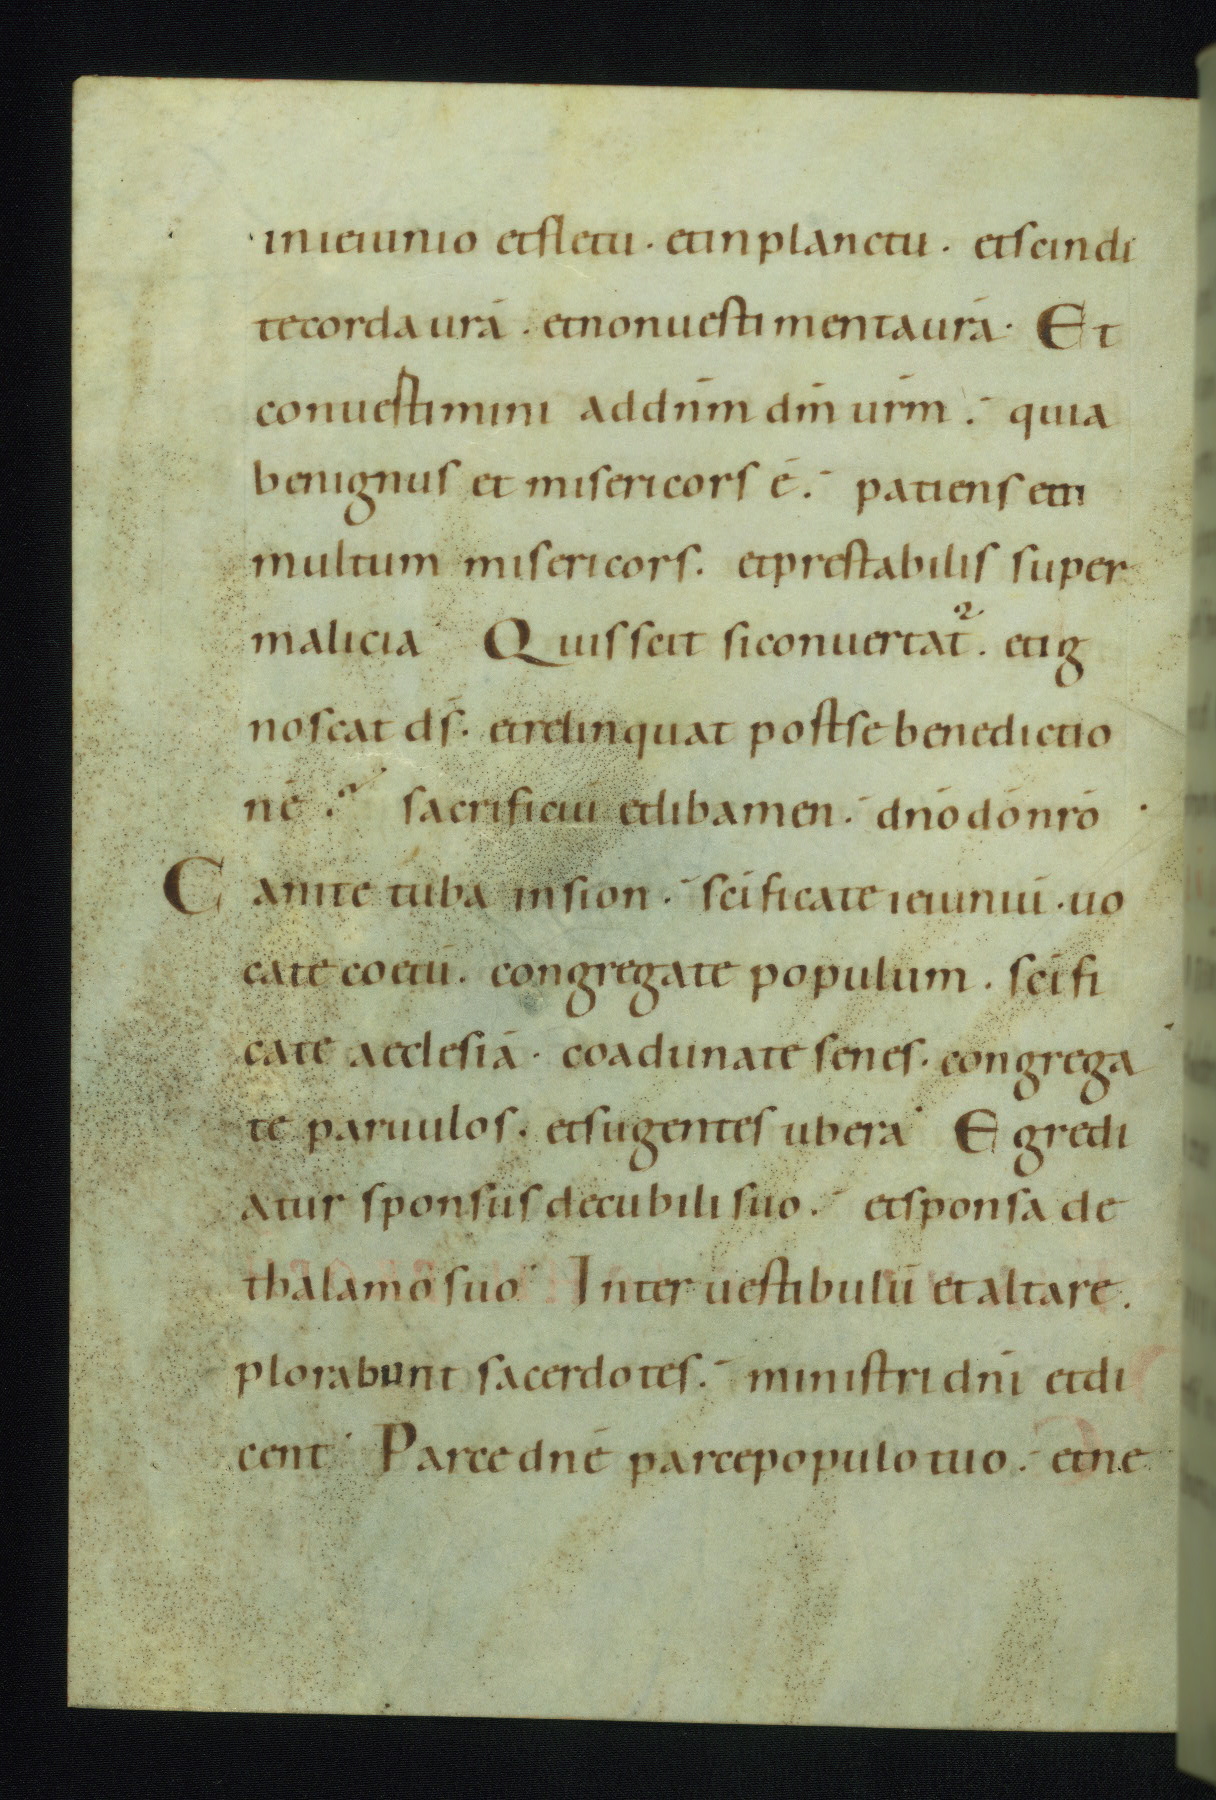 in ieiunio et fletu · et in planctu · et scindi
te corda urā · et non uestimenta urā · Et
conuestimini ad dn̄m dm̄ urm̄ : quia
benignus et misericors ē : patiens et
multum misericors · et prestabilis super
malicia · Quis scit si conuertat᷑ · et ig
noscat ds̄ · et relinquat post se benedictio
nē ? sacrificiū et libamen : dn̄o dō nrō
Canite tuba in sion : sc̄ificate ieiuniū · uo
cate coetū · congregate populum · sc̄ifi
cate aecclesiā · coadunate senes · congrega
te paruulos · et sugentes ubera · Egredi
atur sponsus de cubili suo : et sponsa de
thalamo suo · Inter uestibulū et altare ·
plorabunt sacerdotes : ministri dn̄i et di
cent · Parce dn̄e parce populo tuo : et ne